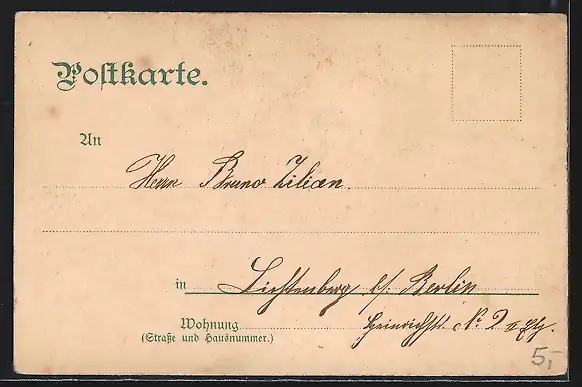 Postkarte.
An
Herrn Bruno Zilian.
in Lichtenberg b/ Berlin
Wohnung Heinrichstr. No 2 II
(Straße und Hausnummer.)
5,-